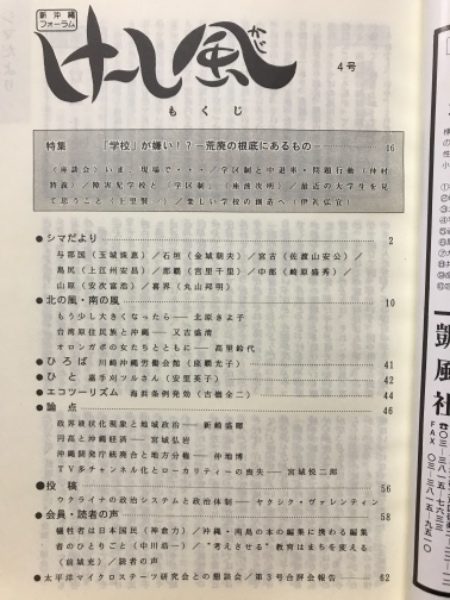 新沖縄
フォーラム
けーし風
かじ
4号
もくじ
特集 「学校」が嫌い!?―荒廃の根底にあるもの― 16
(座談会)いま、現場で・・・/学区制と中退率・問題行動(仲村
/障害児学校と「学区制」(座波次明)/最近の大学生を見
て思うこと(上里賢一)/楽しい学校の創造へ(伊礼弘宜)
●シマだより 2
与那国(玉城珠恵)/石垣(金城朝夫)/宮古(佐渡山安公)/
島尻(上江州安昌)/那覇(宮里千里)/中部(崎原盛秀)/
山原(安次富浩)/喜界(丸山邦明)
●北の風・南の風 10
もう少し大きくなったら―北原きよ子
台湾原住民族と沖縄―又吉盛清
オロンガポの女たちとともに―高里鈴代
●ひろば 川崎沖縄労働会館(座覇光子) 41
●ひと 嘉手苅ツルさん(安里英子) 42
●エコツーリズム 海浜条例発効(古橋全二) 44
●論点 46
政界液状化現象と地域政治―新崎盛暉
円高と沖縄経済―宮城弘岩
沖縄開発庁統廃合と地方分権―仲地博
TV多チャンネル化とローカリティーの喪失―宮城悦二郎
●投稿 56
ウクライナの政治システムと政治体制―ヤクシク・ヴァレンティン
●会員・読者の声 58
犠牲者は日本国民(神倉力)/沖縄・南島の本の編集に携わる編集
者のひとりごと(中川浩一)/“考えさせる”教育はまちを変える
(前城充)/読者の声
●太平洋マイクロステーツ研究会との懇談会/第3号合評会報告 62
凱風社
☎〇三―三八一五―七六三三
FAX 〇三―三八一五―九五一〇